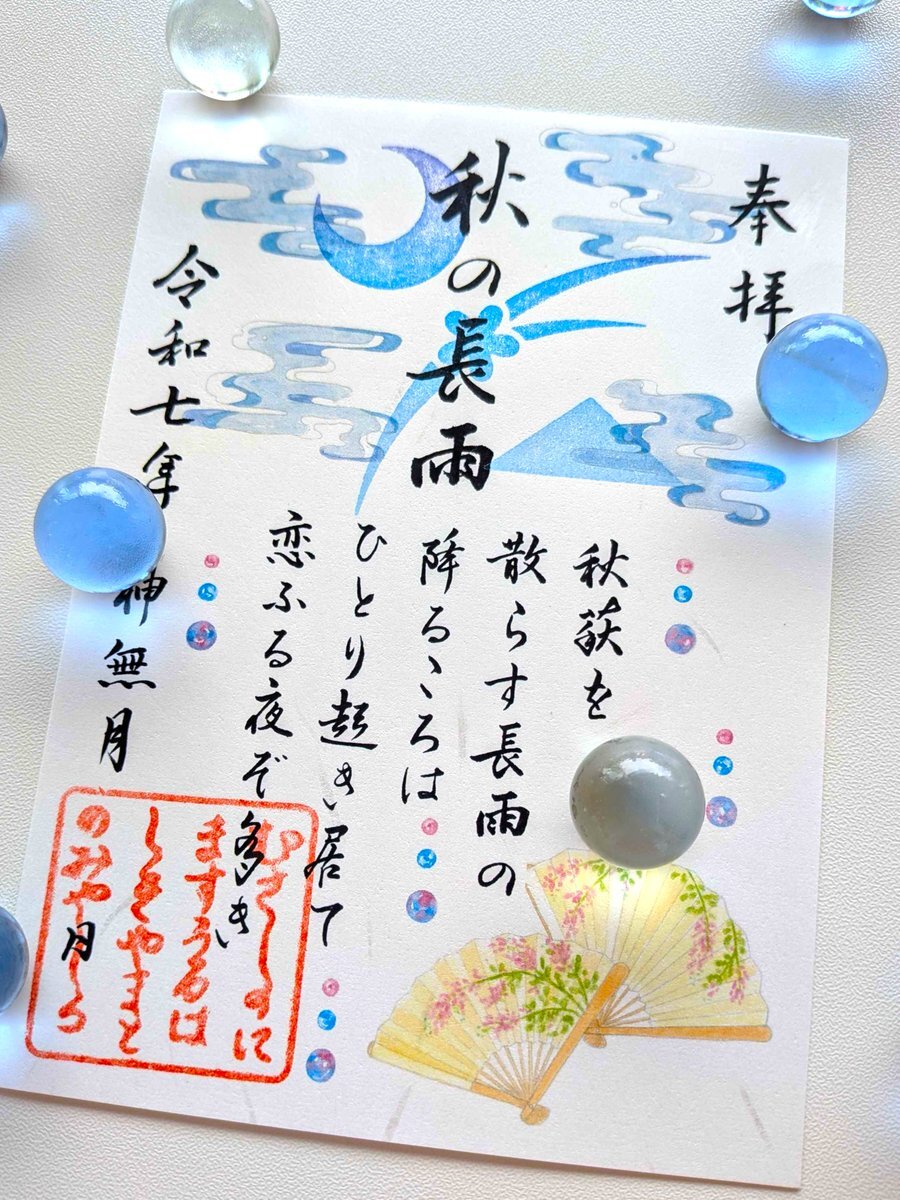 奉拝
秋の長雨
秋萩を
散らす長雨の
降るころは
ひとり起き居て
恋ふる夜ぞ多き
令和七年神無月 月
むさしのに
ますうるは
しきやまと
のみやしろ